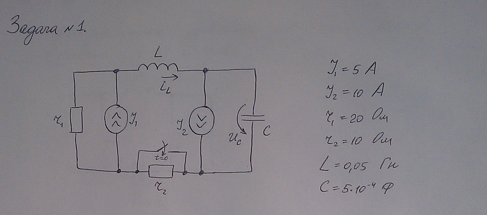 Задача №1.
L
i_L
r_1
J_1
J_2
U_c
C
t=0
r_2
J_1 = 5 А
J_2 = 10 А
r_1 = 20 Ом
r_2 = 10 Ом
L = 0,05 Гн
C = 5·10⁻⁴ Ф